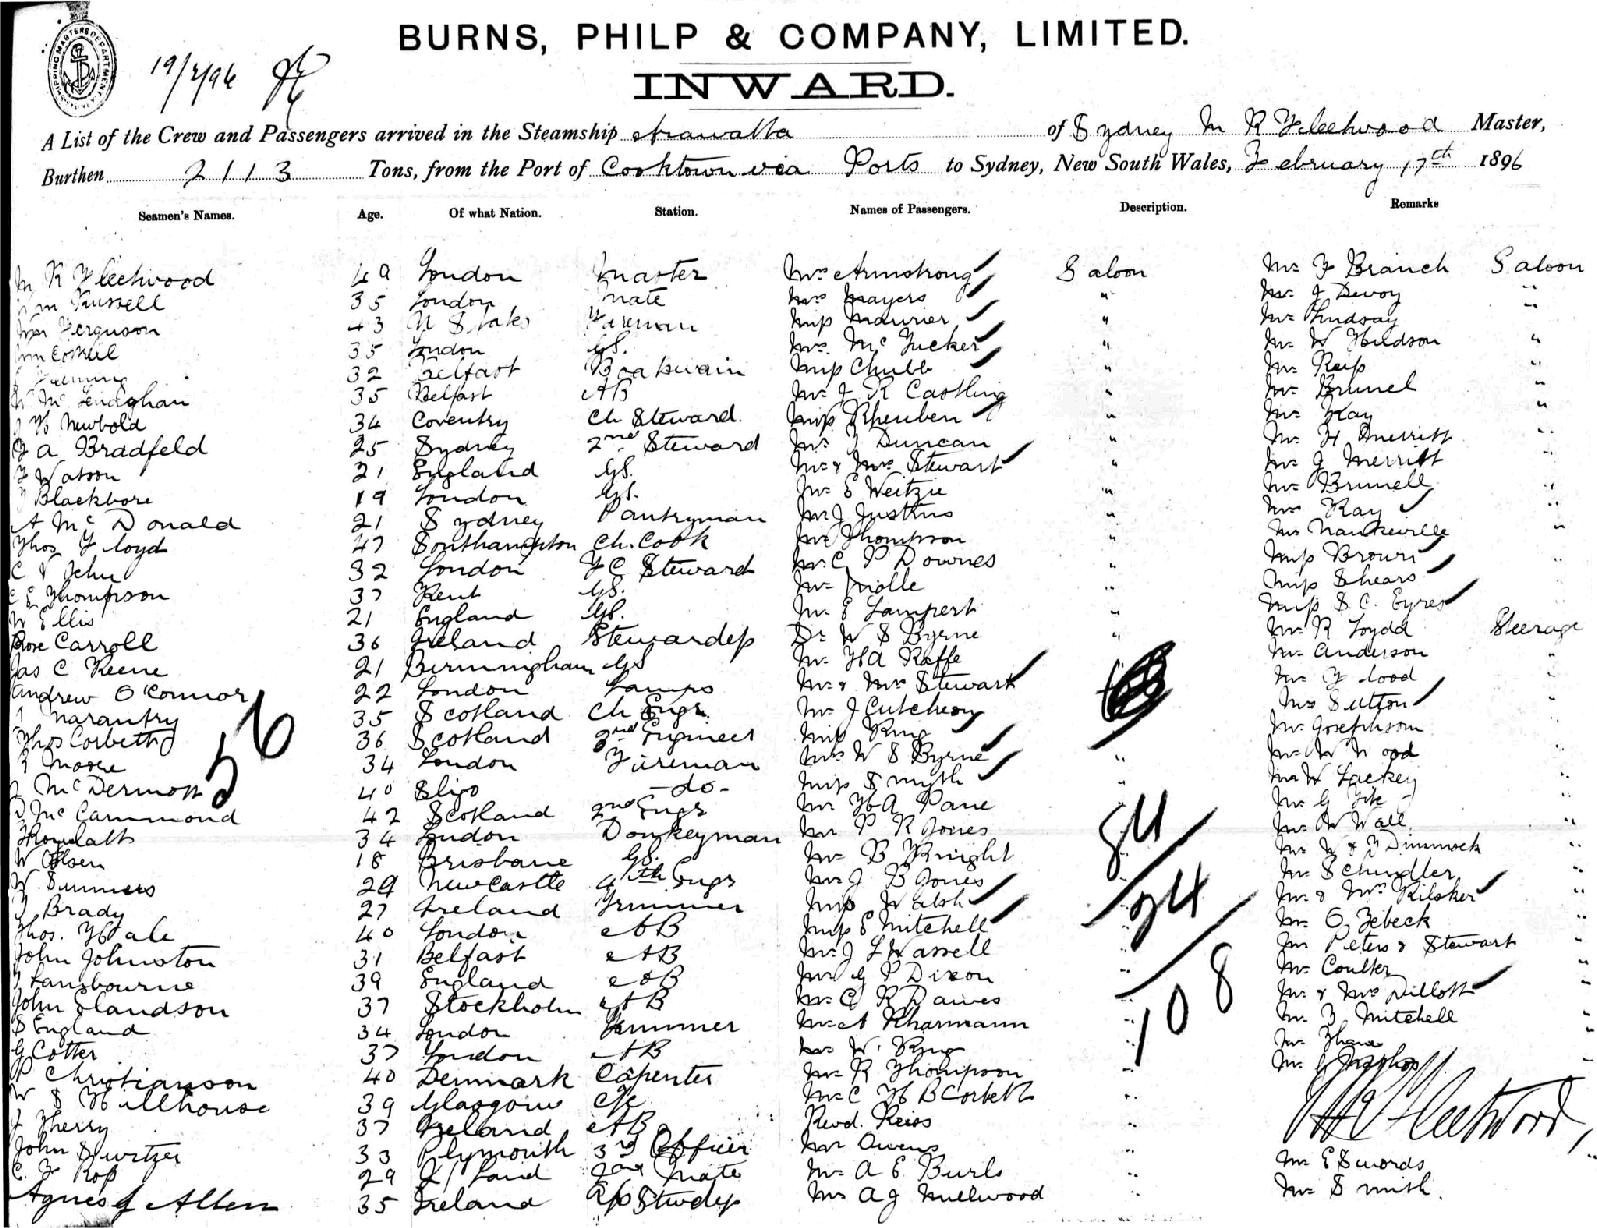 BURNS, PHILP & COMPANY, LIMITED.
INWARD.
19/2/96
A List of the Crew and Passengers arrived in the Steamship Arawatta of Sydney M R Fleetwood Master,
Burthen 2113 Tons, from the Port of Cooktown via Ports to Sydney, New South Wales, February 17th 1896
Seamen's Names. Age. Of what Nation. Station. Names of Passengers. Description. Remarks
M R Fleetwood 49 London Master Mrs Armstrong Saloon Mr F Branch Saloon
Wm Russell 35 London Mate Mrs Mayers " Mr J Devoy "
Ferguson 43 U States Fireman Miss Maurier " Mr Lindsay
35 London GS. Mrs McTucker " Mr W Hudson "
32 Belfast Boatswain Miss Chubb " Mr Reip "
35 Belfast AB Mr J R Castling Mr Brunel "
Newbold 34 Coventry Ch Steward Miss Rheuben " Mr Hay "
A Bradfeld 25 Sydney 2nd Steward Duncan Mr H Merritt "
Watson 21 England GS. Mr & Mrs Stewart " Mr J Merritt "
Blackbore 19 London GS. Mr E Weitzie " Mr Brunell "
A McDonald 21 Sydney Pantryman Mr J Justins " Mrs Kay "
Thos Floyd 47 Southampton Ch. Cook Mr Thompson " Mr Nankeville "
32 London F C Steward Mr C P Downes " Miss Brown "
Thompson 37 Kent GS. Mr Molle " Miss Shears "
W Ellis 21 England GS. Mr E Lampert " Miss S C. Eyres
Rose Carroll 36 Ireland Stewardess Dr W S Byrne " Mr R Loydd Steerage
Jas C Keene 21 Birmingham GS Mr H A Raffe Mr Anderson "
Andrew O'Connor 22 London Lamps Mr & Mrs Stewart Mr F Lood "
Marantry 35 Scotland Ch Engr. Mr J Cutcheon Mrs Sutton "
Thos Corbett 36 Scotland 3rd Engineer Miss King Mr Josephson "
Moore 34 London Fireman Mrs W S Byrne " Mr W Wood "
McDermott 40 Sligo -do- Miss Smyth " Mr W Lackey "
McCammond 42 Scotland 2nd Engr Mr H A Pane Mr G
34 London Donkeyman Mr P R Jones Mr W Wall "
W Olsen 18 Brisbane GS. Mr B Knight Dimmock "
W Summers 29 Newcastle 4th Engr Mr J B Jones Mr Schindler "
Brady 27 Ireland Trimmer Miss Welsh Mr & Mrs Kilsker "
Thos. Hale 40 London AB Miss E Mitchell Mr O. Zebeck "
John Johnston 31 Belfast AB Mr J L Wassell Mr Peters & Stewart "
Lansbourne 39 England AB Mr G P Dixon Mr Coulter "
John Slandson 37 Stockholm AB Mr C R Dawes Mr & Mrs Dillott "
S England 34 London Trimmer Mr A Kharmann Mr Mitchell "
G Cotter 37 London AB Mr W. King
P Christianson 40 Denmark Capenter Mr R Thompson
W S Hillhouse 39 Glasgow Mr C H B Corbett
J Sherry 37 Ireland AB Revd. Reios
John Switzer 33 Plymouth 3rd Officer Mr Owens
C F Ross 29 2nd Mate Mr A E Burls Mr E Swords
Agnes J Allen 35 Ireland Stwdess Mr A J Millwood Mr Smith.
56
84
24
108
M R Fleetwood,